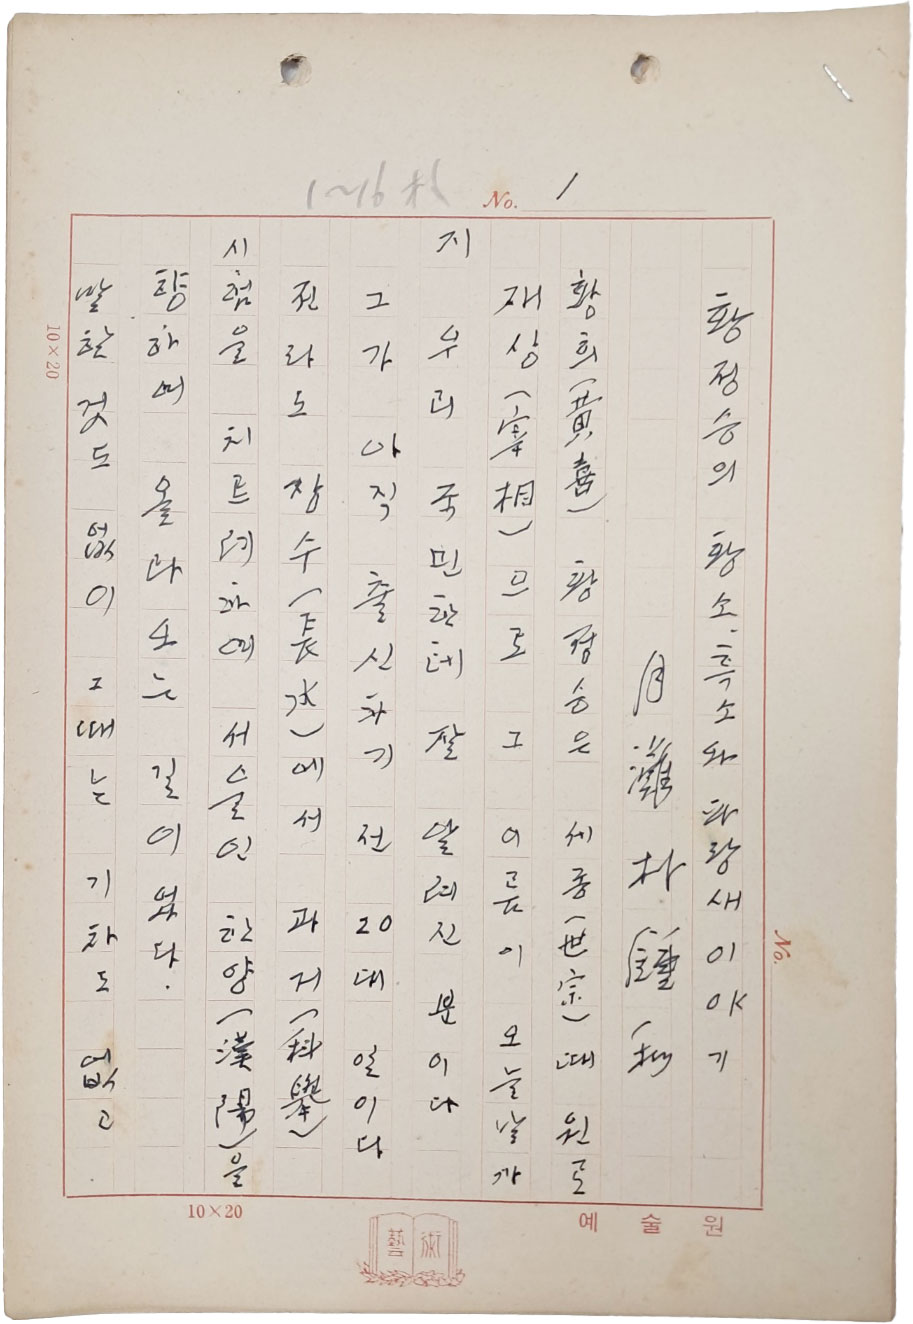 1~16 枚
No. 1
황정승의 황소·흑소와 파랑새 이야기
月灘 朴鍾和
황희(黃喜) 황정승은 세종(世宗)때 원로
재상(宰相)으로 그 이름이 오늘날까
지 우리 국민한테 잘 알려진 분이다
그가 아직 출신하기 전 20대 일이다
전라도 장수(長水)에서 과거(科擧)
시험을 치르려하여 서슬인 한양(漢陽)을
향하여 올라오는 길이었다.
말할 것도 없이 그때는 기차도 없고
10×20
No.
10×20
예술원
藝術